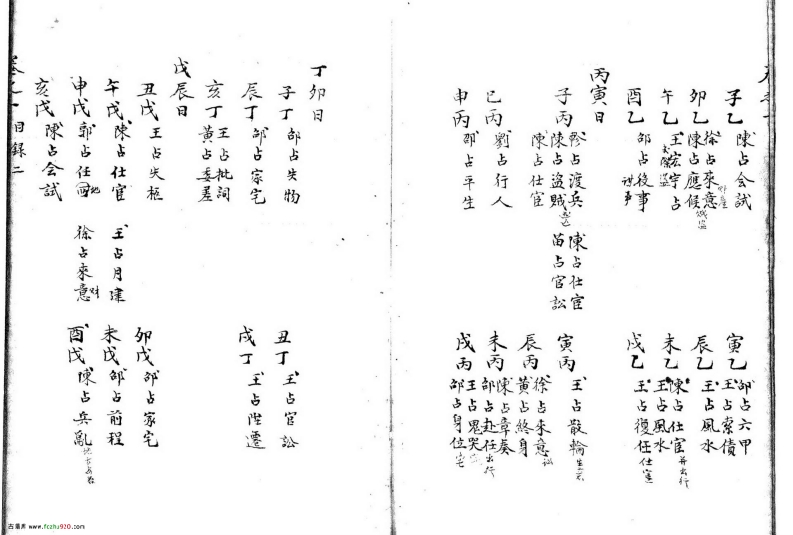 子乙 陳占会試
寅乙 邵占六甲 王占索債
卯乙 徐占來意 陳占應候
辰乙 王占風水
午乙 王宏宇占
未乙 陳占仕宦 并出行 王占風水
酉乙 邵占後事
戌乙 王占復任仕宦
丙寅日
子丙 占渡兵 陳占盜賊 陳占仕宦
陳占仕宦 苗占官訟
寅丙 王占散輪
巳丙 劉占行人
辰丙 徐占來意 訟 黄占終身
未丙 陳占章奏 邵占赴任 出行
申丙 邵占平生
戌丙 王占鬼哭 邵占身位 宅
丁卯日
子丁 邵占失物
丑丁 王占官訟
辰丁 邵占家宅
戌丁 王占陞遷
亥丁 王占批詞 黄占委差
戊辰日
丑戊 王占失柩
卯戊 邵占家宅
午戊 陳占仕宦
王占月建
未戊 邵占前程
申戊 郭占任 地
徐占來意 财
酉戊 陳占兵亂
亥戊 陳占会試
卷之一 目錄二
古易库 www.fczhu920.com